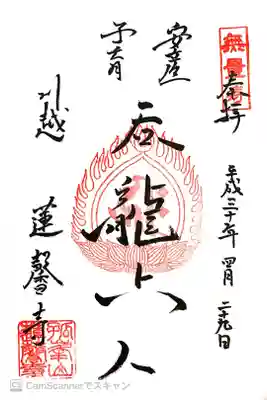 奉拝
平成三十年 四月 二十九日
安産
子育
呑龍上人
川越
蓮馨寺
孤峯山
蓮馨寺
CamScannerでスキャン